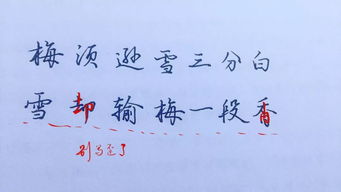 梅须逊雪三分白
雪却输梅一段香
别写歪了